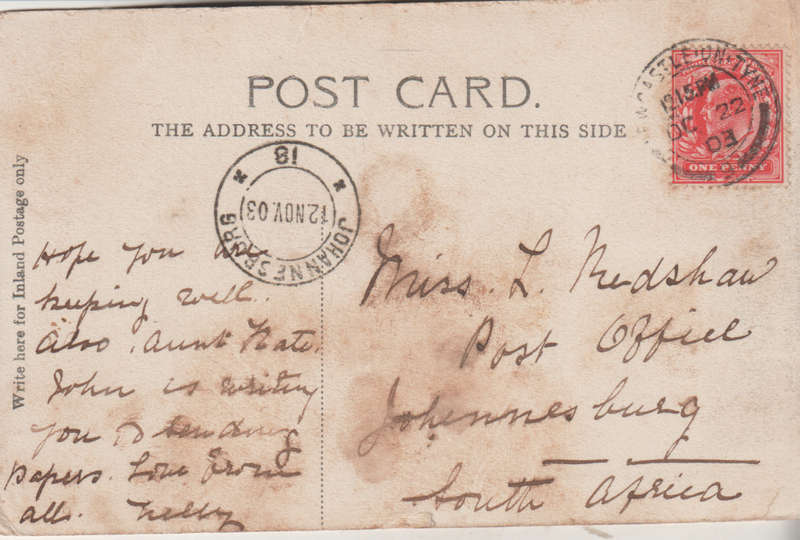 POST CARD.
THE ADDRESS TO BE WRITTEN ON THIS SIDE
Write here for Inland Postage only
NEWCASTLE-ON-TYNE
12.15 PM
OC 22
03
ONE PENNY
18
12 NOV. 03
JOHANNESBURG
Hope you are
keeping well.
Also Aunt Kate.
John is writing
you & sending
papers. Love from
all. Nelly
Miss. L. Redshaw
Post Office
Johannesburg
South Africa